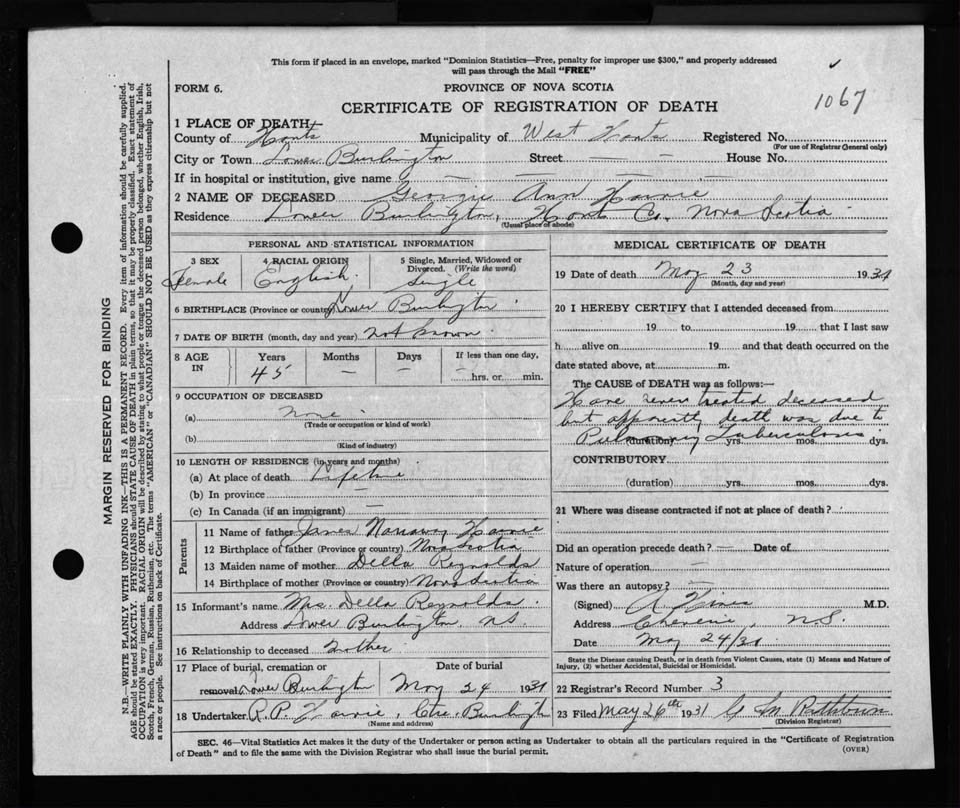 This form if placed in an envelope, marked "Dominion Statistics—Free, penalty for improper use $300," and properly addressed
will pass through the Mail "FREE"
FORM 6.
PROVINCE OF NOVA SCOTIA
CERTIFICATE OF REGISTRATION OF DEATH
1067
1 PLACE OF DEATH—
County of Hants Municipality of West Hants Registered No.
(For use of Registrar General only)
City or Town Lower Burlington Street — — House No.
If in hospital or institution, give name — — — —
2 NAME OF DECEASED Georgie Ann Harvie
Residence Lower Burlington, Hants Co. Nova Scotia
(Usual place of abode)
PERSONAL AND STATISTICAL INFORMATION
3 SEX 4 RACIAL ORIGIN 5 Single, Married, Widowed or
Divorced. (Write the word)
Female English. Single
6 BIRTHPLACE (Province or country) Lower Burlington
7 DATE OF BIRTH (month, day and year) not known
8 AGE IN Years Months Days If less than one day,
45 — — — hrs. or min.
9 OCCUPATION OF DECEASED
(a) None
(Trade or occupation or kind of work)
(b)
(Kind of industry)
10 LENGTH OF RESIDENCE (in years and months)
(a) At place of death Lifetime
(b) In province —
(c) In Canada (if an immigrant) —
Parents
11 Name of father James Harvie
12 Birthplace of father (Province or country) Nova Scotia
13 Maiden name of mother Della Reynolds
14 Birthplace of mother (Province or country) Nova Scotia
15 Informant's name Mrs. Della Reynolds.
Address Lower Burlington. N.S.
16 Relationship to deceased Mother
17 Place of burial, cremation or Date of burial
removal Lower Burlington May 24 1931
18 Undertaker R.P. Harvie, Ctre. Burlington
(Name and address)
MEDICAL CERTIFICATE OF DEATH
19 Date of death May 23 1931
(Month, day and year)
20 I HEREBY CERTIFY that I attended deceased from
19 to 19 that I last saw
h alive on 19 and that death occurred on the
date stated above, at m.
The CAUSE OF DEATH was as follows:—
Have never treated deceased
but apparently death was due to
Pulmonary Tuberculosis
(duration) yrs. mos. dys.
CONTRIBUTORY
(duration) yrs. mos. dys.
21 Where was disease contracted if not at place of death?
Did an operation precede death? — Date of
Nature of operation —
Was there an autopsy? —
(Signed) M.D.
Address Cheverie, N.S.
Date May 24/31
State the Disease causing Death, or in death from Violent Causes, state (1) Means and Nature of
Injury, (2) whether Accidental, Suicidal or Homicidal.
22 Registrar's Record Number 3
23 Filed May 26th 1931 C M Rathburn
(Division Registrar)
SEC. 46—Vital Statistics Act makes it the duty of the Undertaker or person acting as Undertaker to obtain all the particulars required in the "Certificate of Registration
of Death" and to file the same with the Division Registrar who shall issue the burial permit.
(OVER)
MARGIN RESERVED FOR BINDING
N.B.—WRITE PLAINLY WITH UNFADING INK—THIS IS A PERMANENT RECORD. Every item of information should be carefully supplied.
AGE should be stated EXACTLY. PHYSICIANS should STATE CAUSE OF DEATH in plain terms, so that it may be properly classified. Exact statement of
OCCUPATION is very important. RACIAL ORIGIN will be described by stating to what people or tongue the deceased person belonged, whether English, Irish,
Scotch, French, German, Russian, Ruthenian, etc. The terms "AMERICAN" or "CANADIAN" SHOULD NOT BE USED as they express citizenship but not
a race or people. See instructions on back of Certificate.